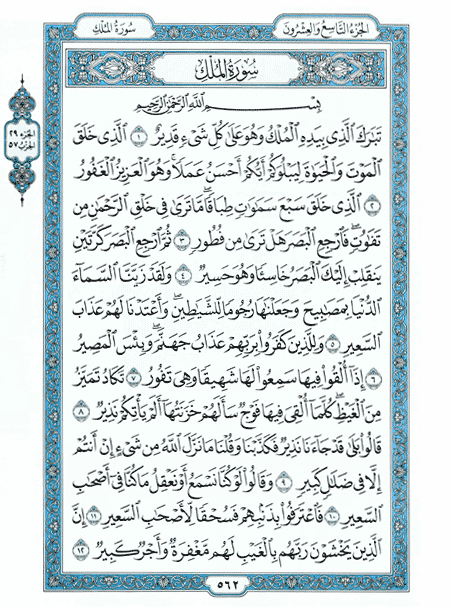 سُورَةُ المُلْكِ
الجُزْءُ التَّاسِعُ وَالعِشْرُونَ
سُورَةُ المُلْكِ
الجزء ٢٩
الحزب ٥٧
بِسْمِ ٱللَّهِ ٱلرَّحْمَٰنِ ٱلرَّحِيمِ
تَبَٰرَكَ ٱلَّذِى بِيَدِهِ ٱلْمُلْكُ وَهُوَ عَلَىٰ كُلِّ شَىْءٍ قَدِيرٌ ١ ٱلَّذِى خَلَقَ
ٱلْمَوْتَ وَٱلْحَيَوٰةَ لِيَبْلُوَكُمْ أَيُّكُمْ أَحْسَنُ عَمَلًا ۚ وَهُوَ ٱلْعَزِيزُ ٱلْغَفُورُ
٢ ٱلَّذِى خَلَقَ سَبْعَ سَمَٰوَٰتٍ طِبَاقًا ۖ مَّا تَرَىٰ فِى خَلْقِ ٱلرَّحْمَٰنِ مِن
تَفَٰوُتٍ ۖ فَٱرْجِعِ ٱلْبَصَرَ هَلْ تَرَىٰ مِن فُطُورٍ ٣ ثُمَّ ٱرْجِعِ ٱلْبَصَرَ كَرَّتَيْنِ
يَنقَلِبْ إِلَيْكَ ٱلْبَصَرُ خَاسِئًا وَهُوَ حَسِيرٌ ٤ وَلَقَدْ زَيَّنَّا ٱلسَّمَآءَ
ٱلدُّنْيَا بِمَصَٰبِيحَ وَجَعَلْنَٰهَا رُجُومًا لِّلشَّيَٰطِينِ ۖ وَأَعْتَدْنَا لَهُمْ عَذَابَ
ٱلسَّعِيرِ ٥ وَلِلَّذِينَ كَفَرُوا۟ بِرَبِّهِمْ عَذَابُ جَهَنَّمَ ۖ وَبِئْسَ ٱلْمَصِيرُ
٦ إِذَآ أُلْقُوا۟ فِيهَا سَمِعُوا۟ لَهَا شَهِيقًا وَهِىَ تَفُورُ ٧ تَكَادُ تَمَيَّزُ
مِنَ ٱلْغَيْظِ ۖ كُلَّمَآ أُلْقِىَ فِيهَا فَوْجٌ سَأَلَهُمْ خَزَنَتُهَآ أَلَمْ يَأْتِكُمْ نَذِيرٌ ٨
قَالُوا۟ بَلَىٰ قَدْ جَآءَنَا نَذِيرٌ فَكَذَّبْنَا وَقُلْنَا مَا نَزَّلَ ٱللَّهُ مِن شَىْءٍ إِنْ أَنتُمْ
إِلَّا فِى ضَلَٰلٍ كَبِيرٍ ٩ وَقَالُوا۟ لَوْ كُنَّا نَسْمَعُ أَوْ نَعْقِلُ مَا كُنَّا فِىٓ أَصْحَٰبِ
ٱلسَّعِيرِ ١٠ فَٱعْتَرَفُوا۟ بِذَنۢبِهِمْ فَسُحْقًا لِّأَصْحَٰبِ ٱلسَّعِيرِ ١١ إِنَّ
ٱلَّذِينَ يَخْشَوْنَ رَبَّهُم بِٱلْغَيْبِ لَهُم مَّغْفِرَةٌ وَأَجْرٌ كَبِيرٌ ١٢
٥٦٢